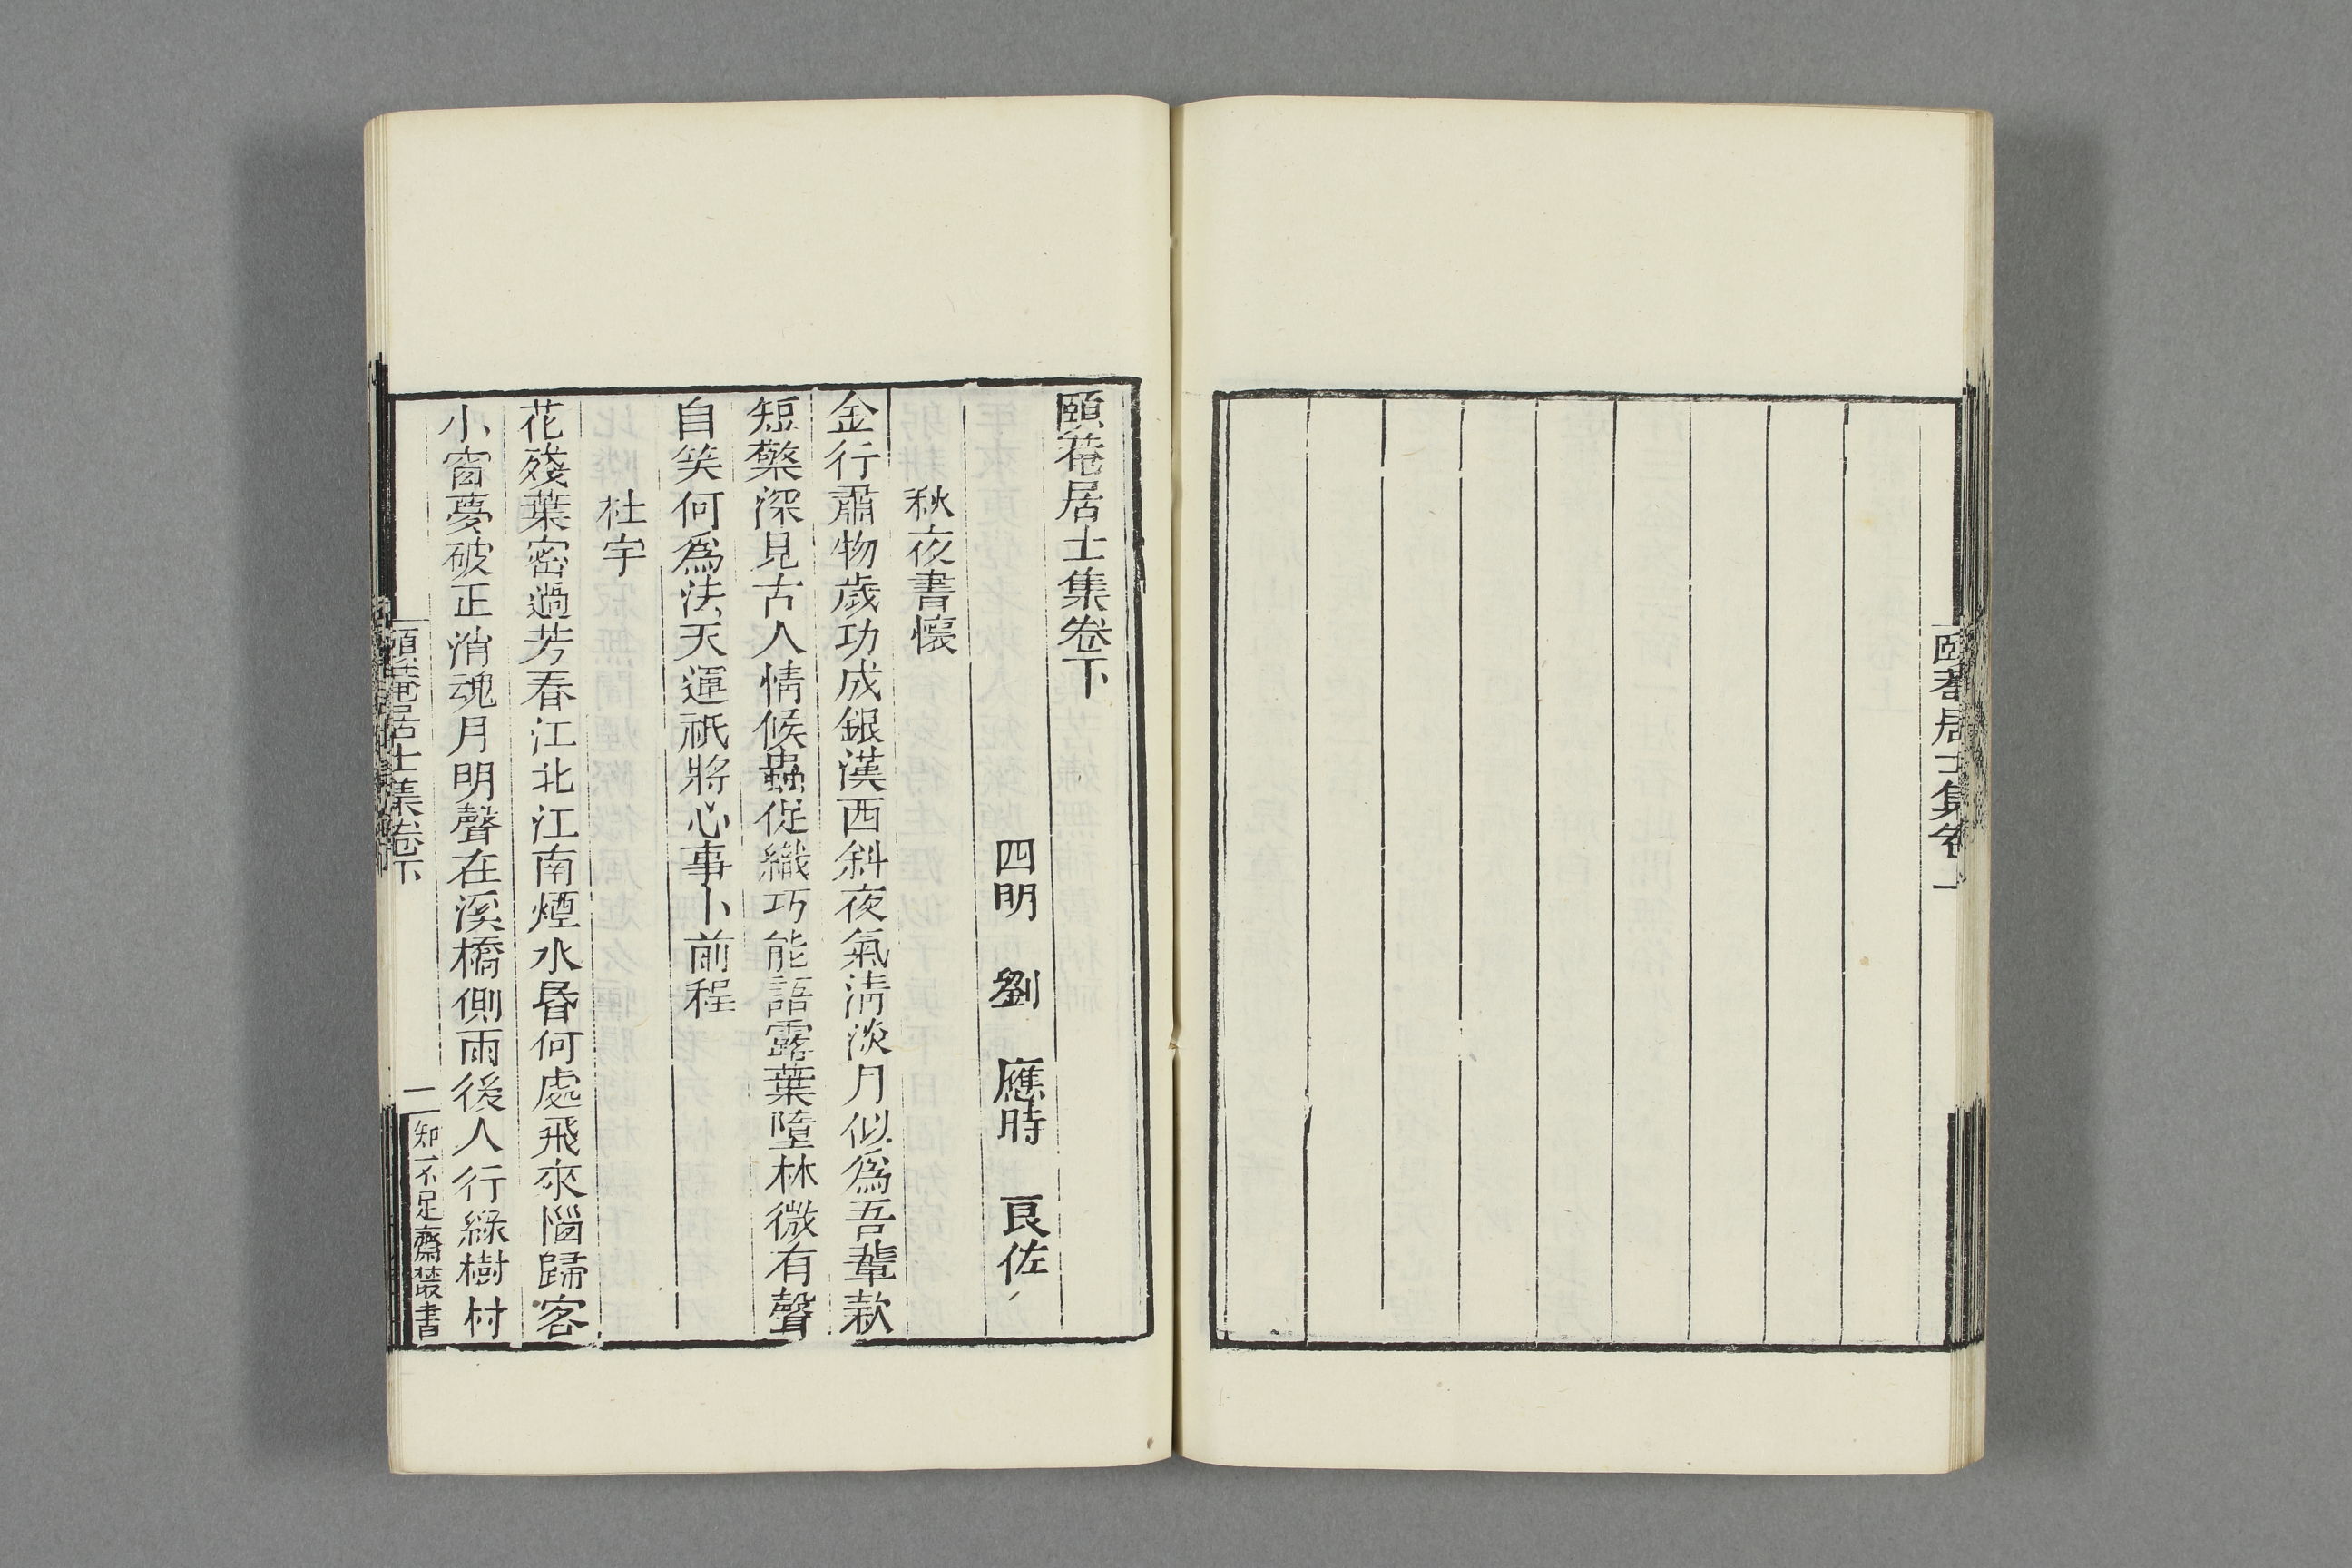 頤菴居士集卷
頤菴居士集卷下
四明 劉 應時 良佐
秋夜書懷
金行肅物歲功成銀漢西斜夜氣清淡月似爲吾輩款
短檠深見古人情候蟲促織巧能語露葉墮林微有聲
自笑何爲法天運祇將心事卜前程
杜宇
花殘葉密過芳春江北江南煙水昏何處飛來惱歸客
小窗夢破正消魂月明聲在溪橋側雨後人行綠樹村
頤菴居士集卷下
一
知不足齋叢書